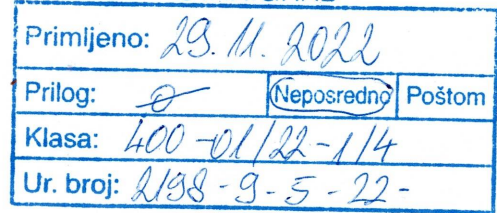 Primljeno: 29. 11. 2022
Prilog: Ø Neposredno Poštom
Klasa: 400-01/22-1/4
Ur. broj: 2198-9-5-22-